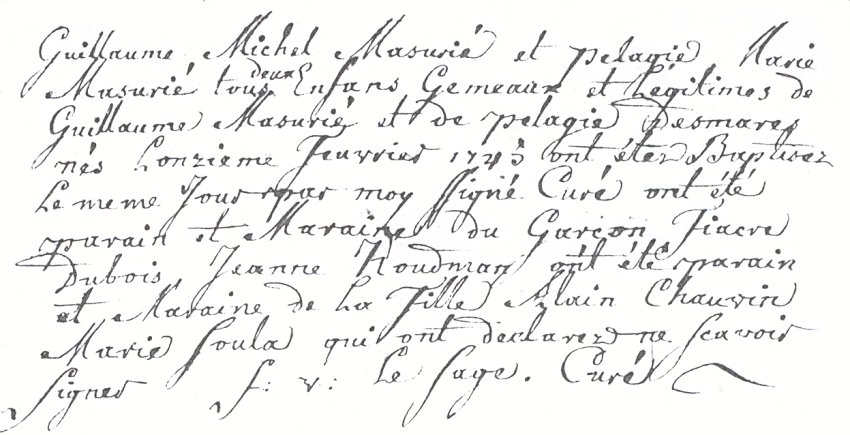 Guillaume Michel Masurié et pelagie Marie
Masurié tous deux Enfans Gemeaux et Légitimes de
Guillaume Masurié et de pelagie Desmares
nés Lonzieme feuvrier 1743 ont étez Baptisez
Le meme Jour par moy Signé Curé ont été
parain et Maraine du Garçon fiacre
Dubois, Jeanne Koudman ont été parain
et Maraine de La fille Alain Chauvin
Marie Soula qui ont declarez ne Scavoir
Signer f: v: Le Sage. Curé